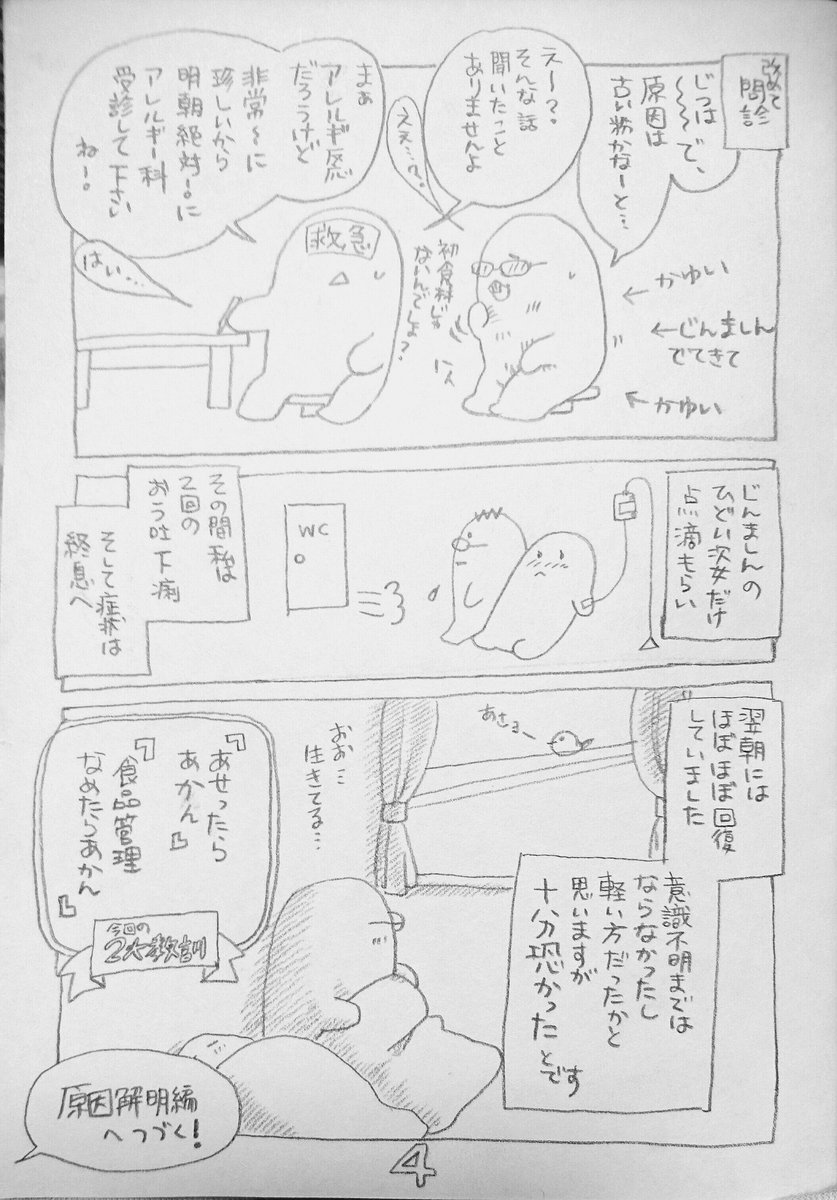 改めて
問診
じつは
〜〜〜で、
原因は
古い粉かなーと…
えー?。
そんな話
聞いたこと
ありませんよ
ええ…?。
まぁ
アレルギー反応
だろうけど
非常〜に
珍しいから
明朝絶対!。に
アレルギー科
受診して下さい
ねー。
はい…
救急
初食材じゃ
ないんでしょ?
←かゆい
←じんましん
でてきて
←かゆい
じんましんの
ひどい次女だけ
点滴もらい
WC
その間私は
2回の
おう吐下痢
そして症状は
終息へ
翌朝には
ほぼほぼ回復
していました
あさョー
意識不明までは
ならなかったし
軽い方だったかと
思いますが
十分恐かったとです
おお…
生きてる…
『あせったら
あかん』
『食品管理
なめたらあかん』
今回の
2大教訓
原因解明編
へつづく!
4